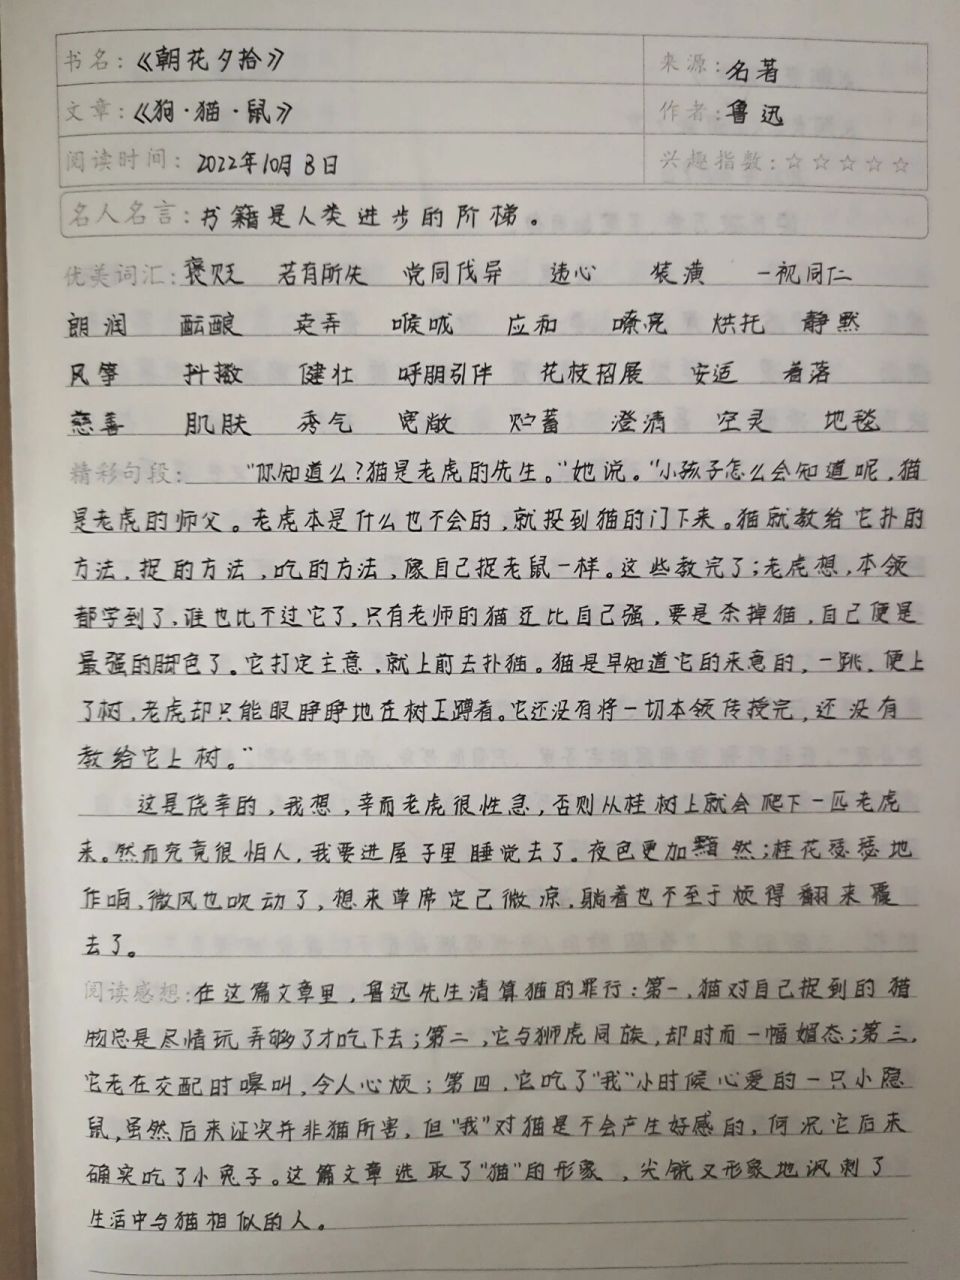 书名：《朝花夕拾》 来源：名著
文章：《狗·猫·鼠》 作者：鲁迅
阅读时间：2022年10月8日 兴趣指数：☆☆☆☆☆
名人名言：书籍是人类进步的阶梯。
优美词汇：褒贬 若有所失 党同伐异 违心 装潢 一视同仁
朗润 酝酿 卖弄 喉咙 应和 嘹亮 烘托 静默
风筝 抖擞 健壮 呼朋引伴 花枝招展 安适 着落
慈善 肌肤 秀气 宽敞 贮蓄 澄清 空灵 地毯
精彩句段：“你知道么？猫是老虎的先生。”她说。“小孩子怎么会知道呢，猫
是老虎的师父。老虎本是什么也不会的，就投到猫的门下来。猫就教给它扑的
方法，捉的方法，吃的方法，像自己捉老鼠一样。这些教完了；老虎想，本领
都学到了，谁也比不过它了，只有老师的猫还比自己强，要是杀掉猫，自己便是
最强的脚色了。它打定主意，就上前去扑猫。猫是早知道它的来意的，一跳，便上
了树，老虎却只能眼睁睁地在树下蹲着。它还没有将一切本领传授完，还没有
教给它上树。”
这是侥幸的，我想，幸而老虎很性急，否则从桂树上就会爬下一匹老虎
来。然而究竟很怕人，我要进屋子里睡觉去了。夜色更加黯然；桂花瑟瑟地
作响，微风也吹动了，想来草席定已微凉，躺着也不至于烦得翻来覆
去了。
阅读感想：在这篇文章里，鲁迅先生清算猫的罪行：第一，猫对自己捉到的猎
物总是尽情玩弄够了才吃下去；第二，它与狮虎同族，却时而一幅媚态；第三，
它老在交配时嗥叫，令人心烦；第四，它吃了“我”小时候心爱的一只小隐
鼠，虽然后来证实并非猫所害，但“我”对猫是不会产生好感的，何况它后来
确实吃了小兔子。这篇文章选取了“猫”的形象，尖锐又形象地讽刺了
生活中与猫相似的人。